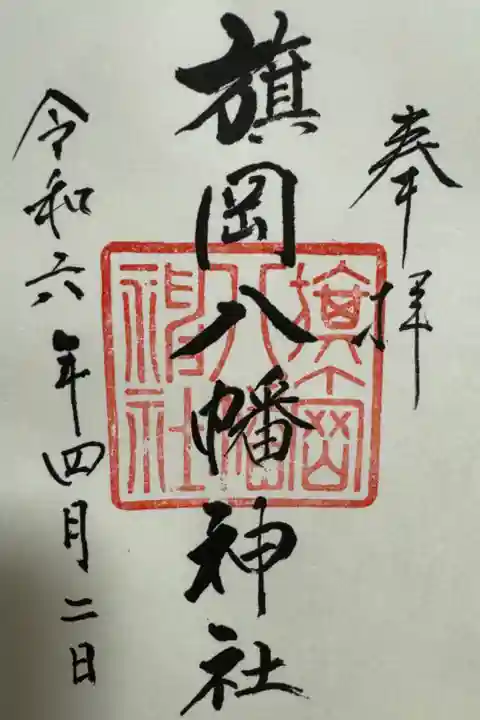 奉拝
旗岡八幡神社
令和六年四月二日
旗岡
八幡
神社